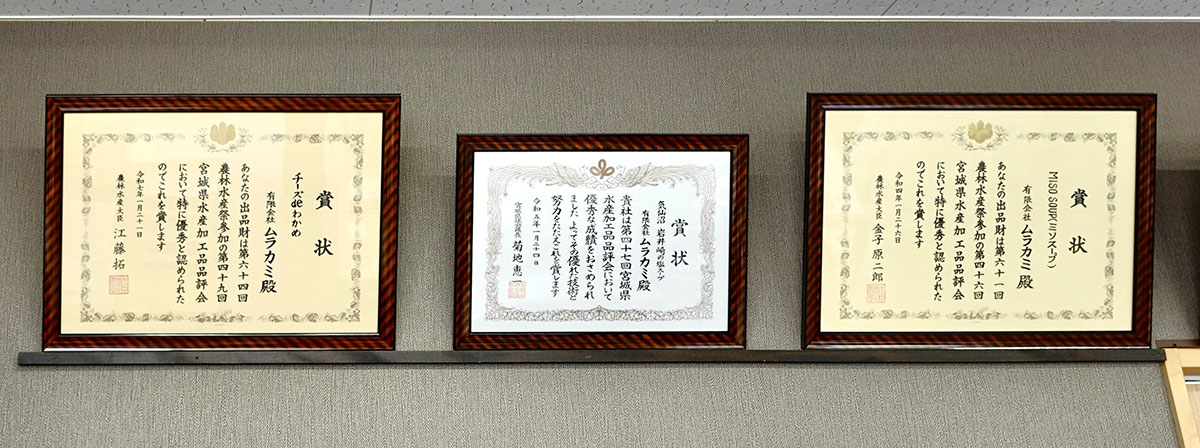 賞状
チーズdeわかめ
有限会社 ムラカミ殿
あなたの出品財は第六十四回
農林水産祭参加の第四十九回
宮城県水産加工品品評会
において特に優秀と認められた
のでこれを賞します
令和七年一月二十一日
農林水産大臣 江藤 拓
賞状
気仙沼 岩井崎の塩スープ
有限会社 ムラカミ殿
貴社は第四十七回宮城県
水産加工品品評会において
優秀な成績をおさめられ
ました よってその優れた技術と
努力をたたえこれを賞します
令和五年一月二十四日
菊地恵一
賞状
MISO SOUP(ミソスープ)
有限会社 ムラカミ殿
あなたの出品財は第六十一回
農林水産祭参加の第四十六回
宮城県水産加工品品評会
において特に優秀と認められた
のでこれを賞します
令和四年一月二十六日
農林水産大臣 金子原二郎